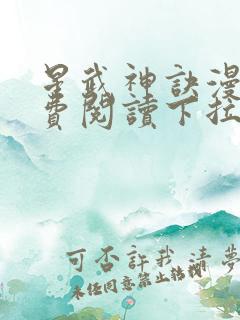 星武神訣漫
費閱讀下拉
可否許我清夢
未任同意禁止轉載